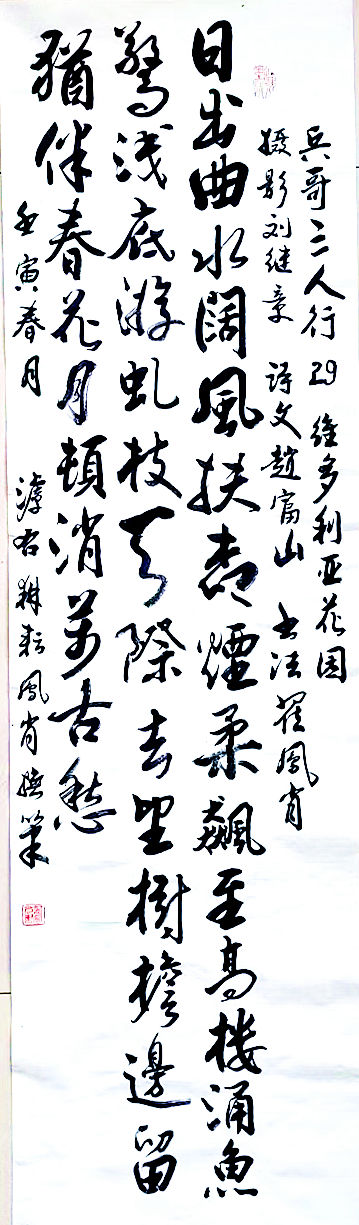 兵哥三人行 29 维多利亚花园
摄影刘继章 诗文赵富山 书法翟凤肖
日出曲水阔風扶青煙柔飄至高楼涌魚
驚浅底游虬枝天際去里樹檐邊留
猶伴春花月頓消萬古愁
壬寅春月 滹右耕耘鳳肖撫筆